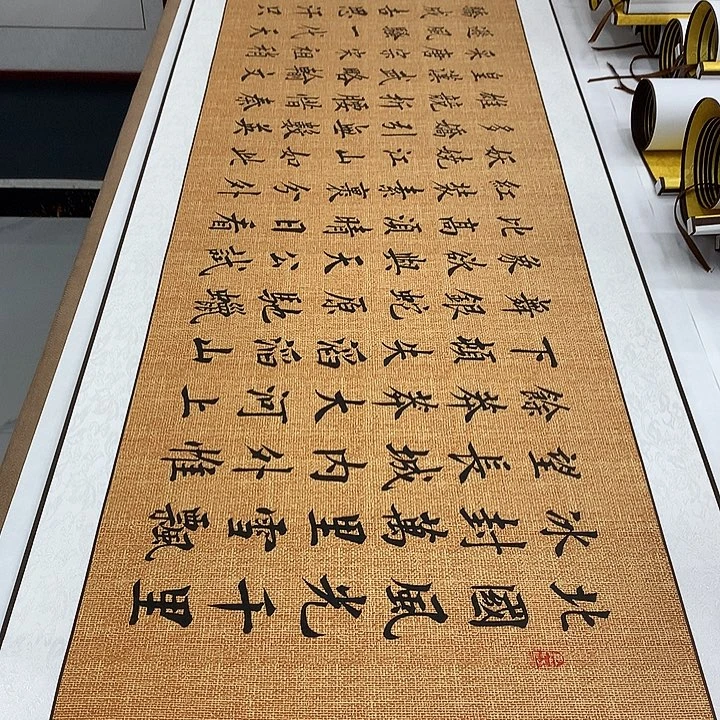 北國風光千里
冰封萬里雪飄
望長城內外惟
餘莽莽大河上
下頓失滔滔山
舞銀蛇原馳蠟
象欲與天公試
比高須晴日看
紅裝素裹分外
妖嬈江山如此
多嬌引無數英
雄競折腰惜秦
皇漢武略輸文
采唐宗宋祖稍
遜風騷一代天
驕成吉思汗只